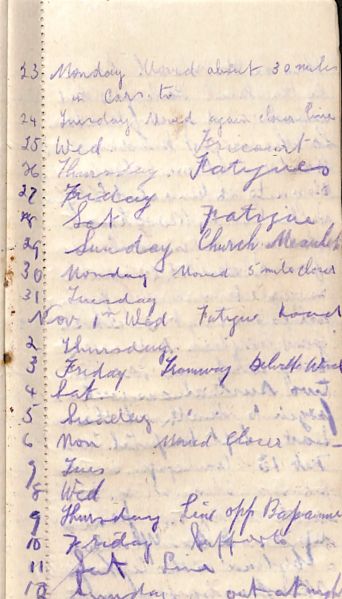 23 Monday Moved about 30 miles
in Cars to
24 Tuesday Moved again closer line
25 Wed Fricourt
26 Thursday Fatigues
27 Friday
28 Sat Fatigue
29 Sunday Church
30 Monday Moved 5 miles closer
31 Tuesday
Nov 1st Wed Fatigue
2 Thursday
3 Friday Tramway Delville Wood
4 Sat
5 Sunday
6 Mon Moved Closer
7 Tues
8 Wed
9 Thursday Line opp Bapaume
10 Friday
11 Sat Line
12 Sunday out at night